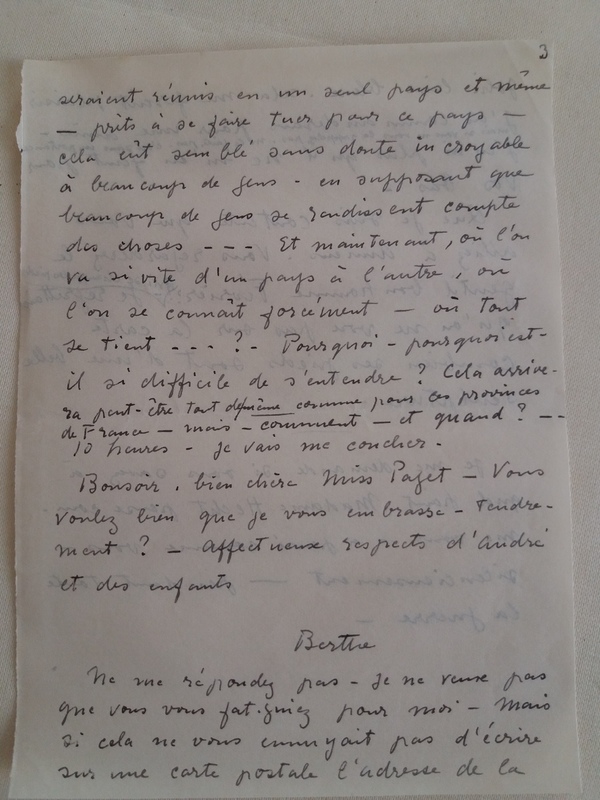 3
seraient réunis en un seul pays et même
— prêts à se faire tuer pour ce pays —
cela eût semblé sans doute incroyable
à beaucoup de gens - en supposant que
beaucoup de gens se rendissent compte
des choses - - - Et maintenant, où l'on
va si vite d'un pays à l'autre, où
l'on se connaît forcément — où tout
se tient - - - ? - Pourquoi - pourquoi est-
il si difficile de s'entendre ? Cela arrive-
ra peut-être tout de même comme pour ces provinces
de France — mais — comment — et quand ? - -
10 heures - je vais me coucher -
Bonsoir, bien chère Miss Paget — Vous
voulez bien que je vous embrasse - tendre-
ment ? — Affectueux respects d'André
et des enfants
Berthe
Ne me répondez pas - je ne veux pas
que vous vous fatiguiez pour moi - Mais
si cela ne vous ennuyait pas d'écrire
sur une carte postale l'adresse de la